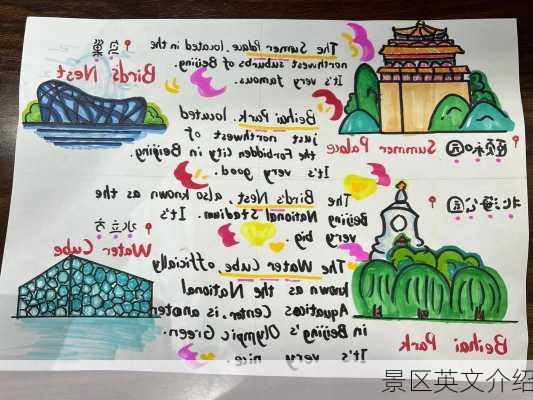 鸟巢
Bird's Nest
The Summer Palace, located in the
northwest suburbs of Beijing.
It's very famous.
颐和园
Summer Palace
Beihai Park, located
just northwest of
the Forbidden City in Beijing
It's very good.
The Bird's Nest, also known as the
Beijing National Stadium. It's
very big.
北海公园
Beihai Park
水立方
Water Cube
The Water Cube officially
known as the National
Aquatics Center, is another
in Beijing's Olympic Green.
It's very nice.
景区英文介绍